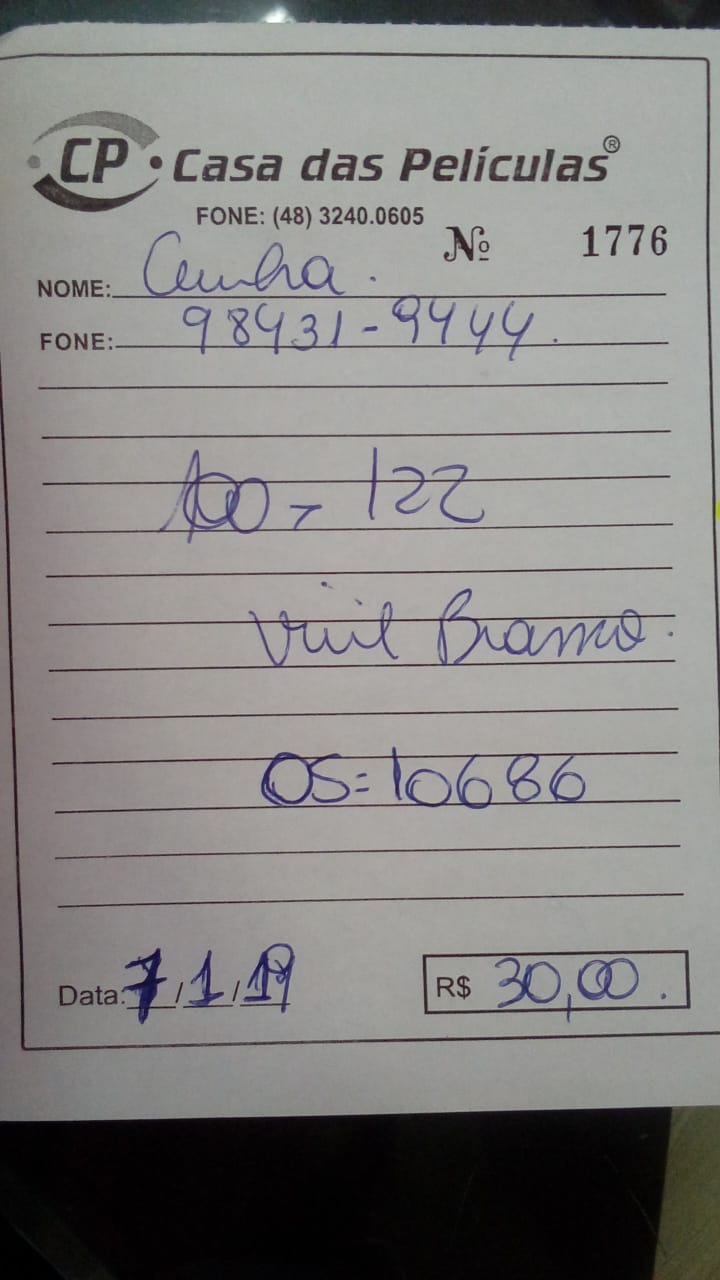 CP • Casa das Películas®
FONE: (48) 3240.0605
Nº 1776
NOME: Cunha.
FONE: 98431-9444.
100 - 122
Vinil Branco.
OS=10686
Data: 7/1/19
R$ 30,00.